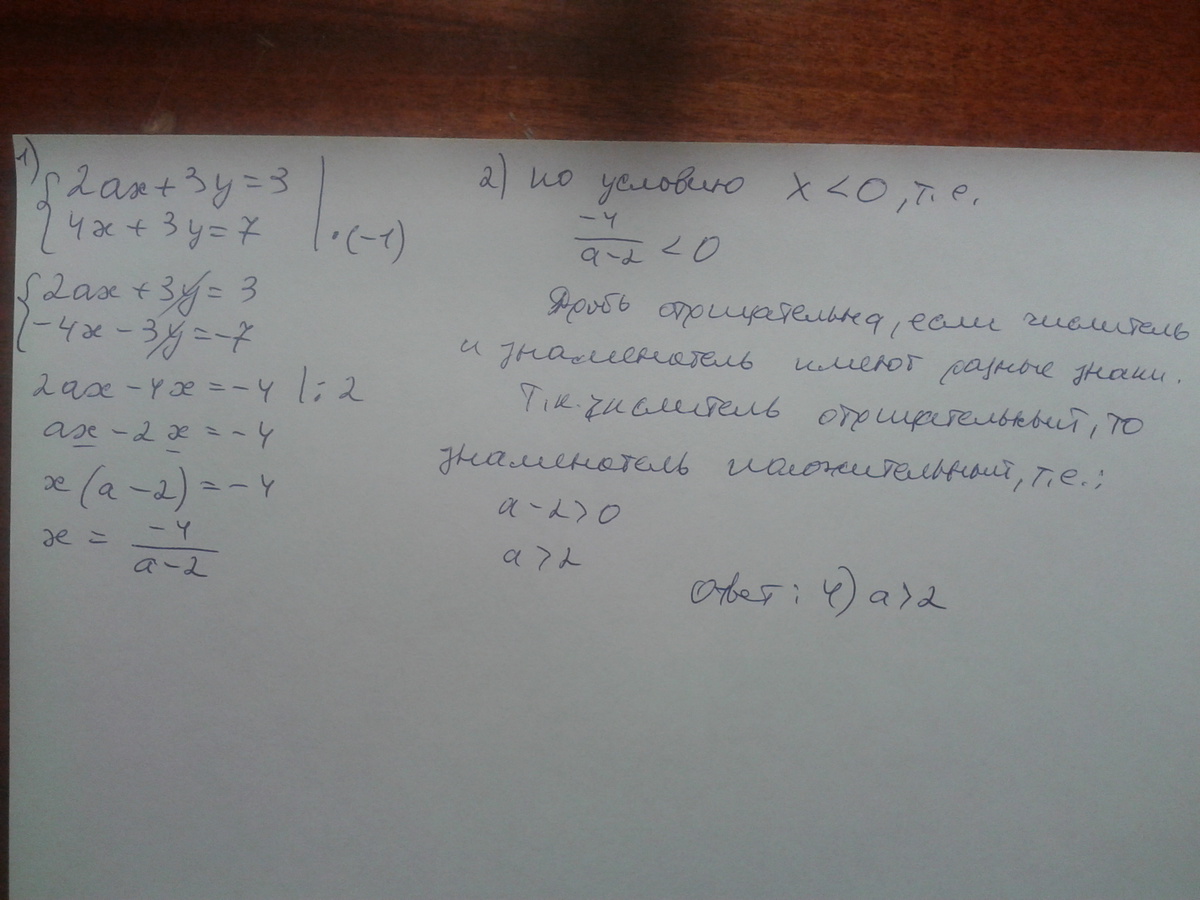 1)
2ax + 3y = 3
4x + 3y = 7 | · (-1)
2ax + 3y = 3
-4x - 3y = -7
2ax - 4x = -4 | : 2
ax - 2x = -4
x(a - 2) = -4
x = -4/(a-2)
2) по условию x < 0, т.е.
-4/(a-2) < 0
Дробь отрицательна, если числитель
и знаменатель имеют разные знаки.
Т.к. числитель отрицательный, то
знаменатель положительный, т.е.:
a - 2 > 0
a > 2
Ответ: 4) a > 2